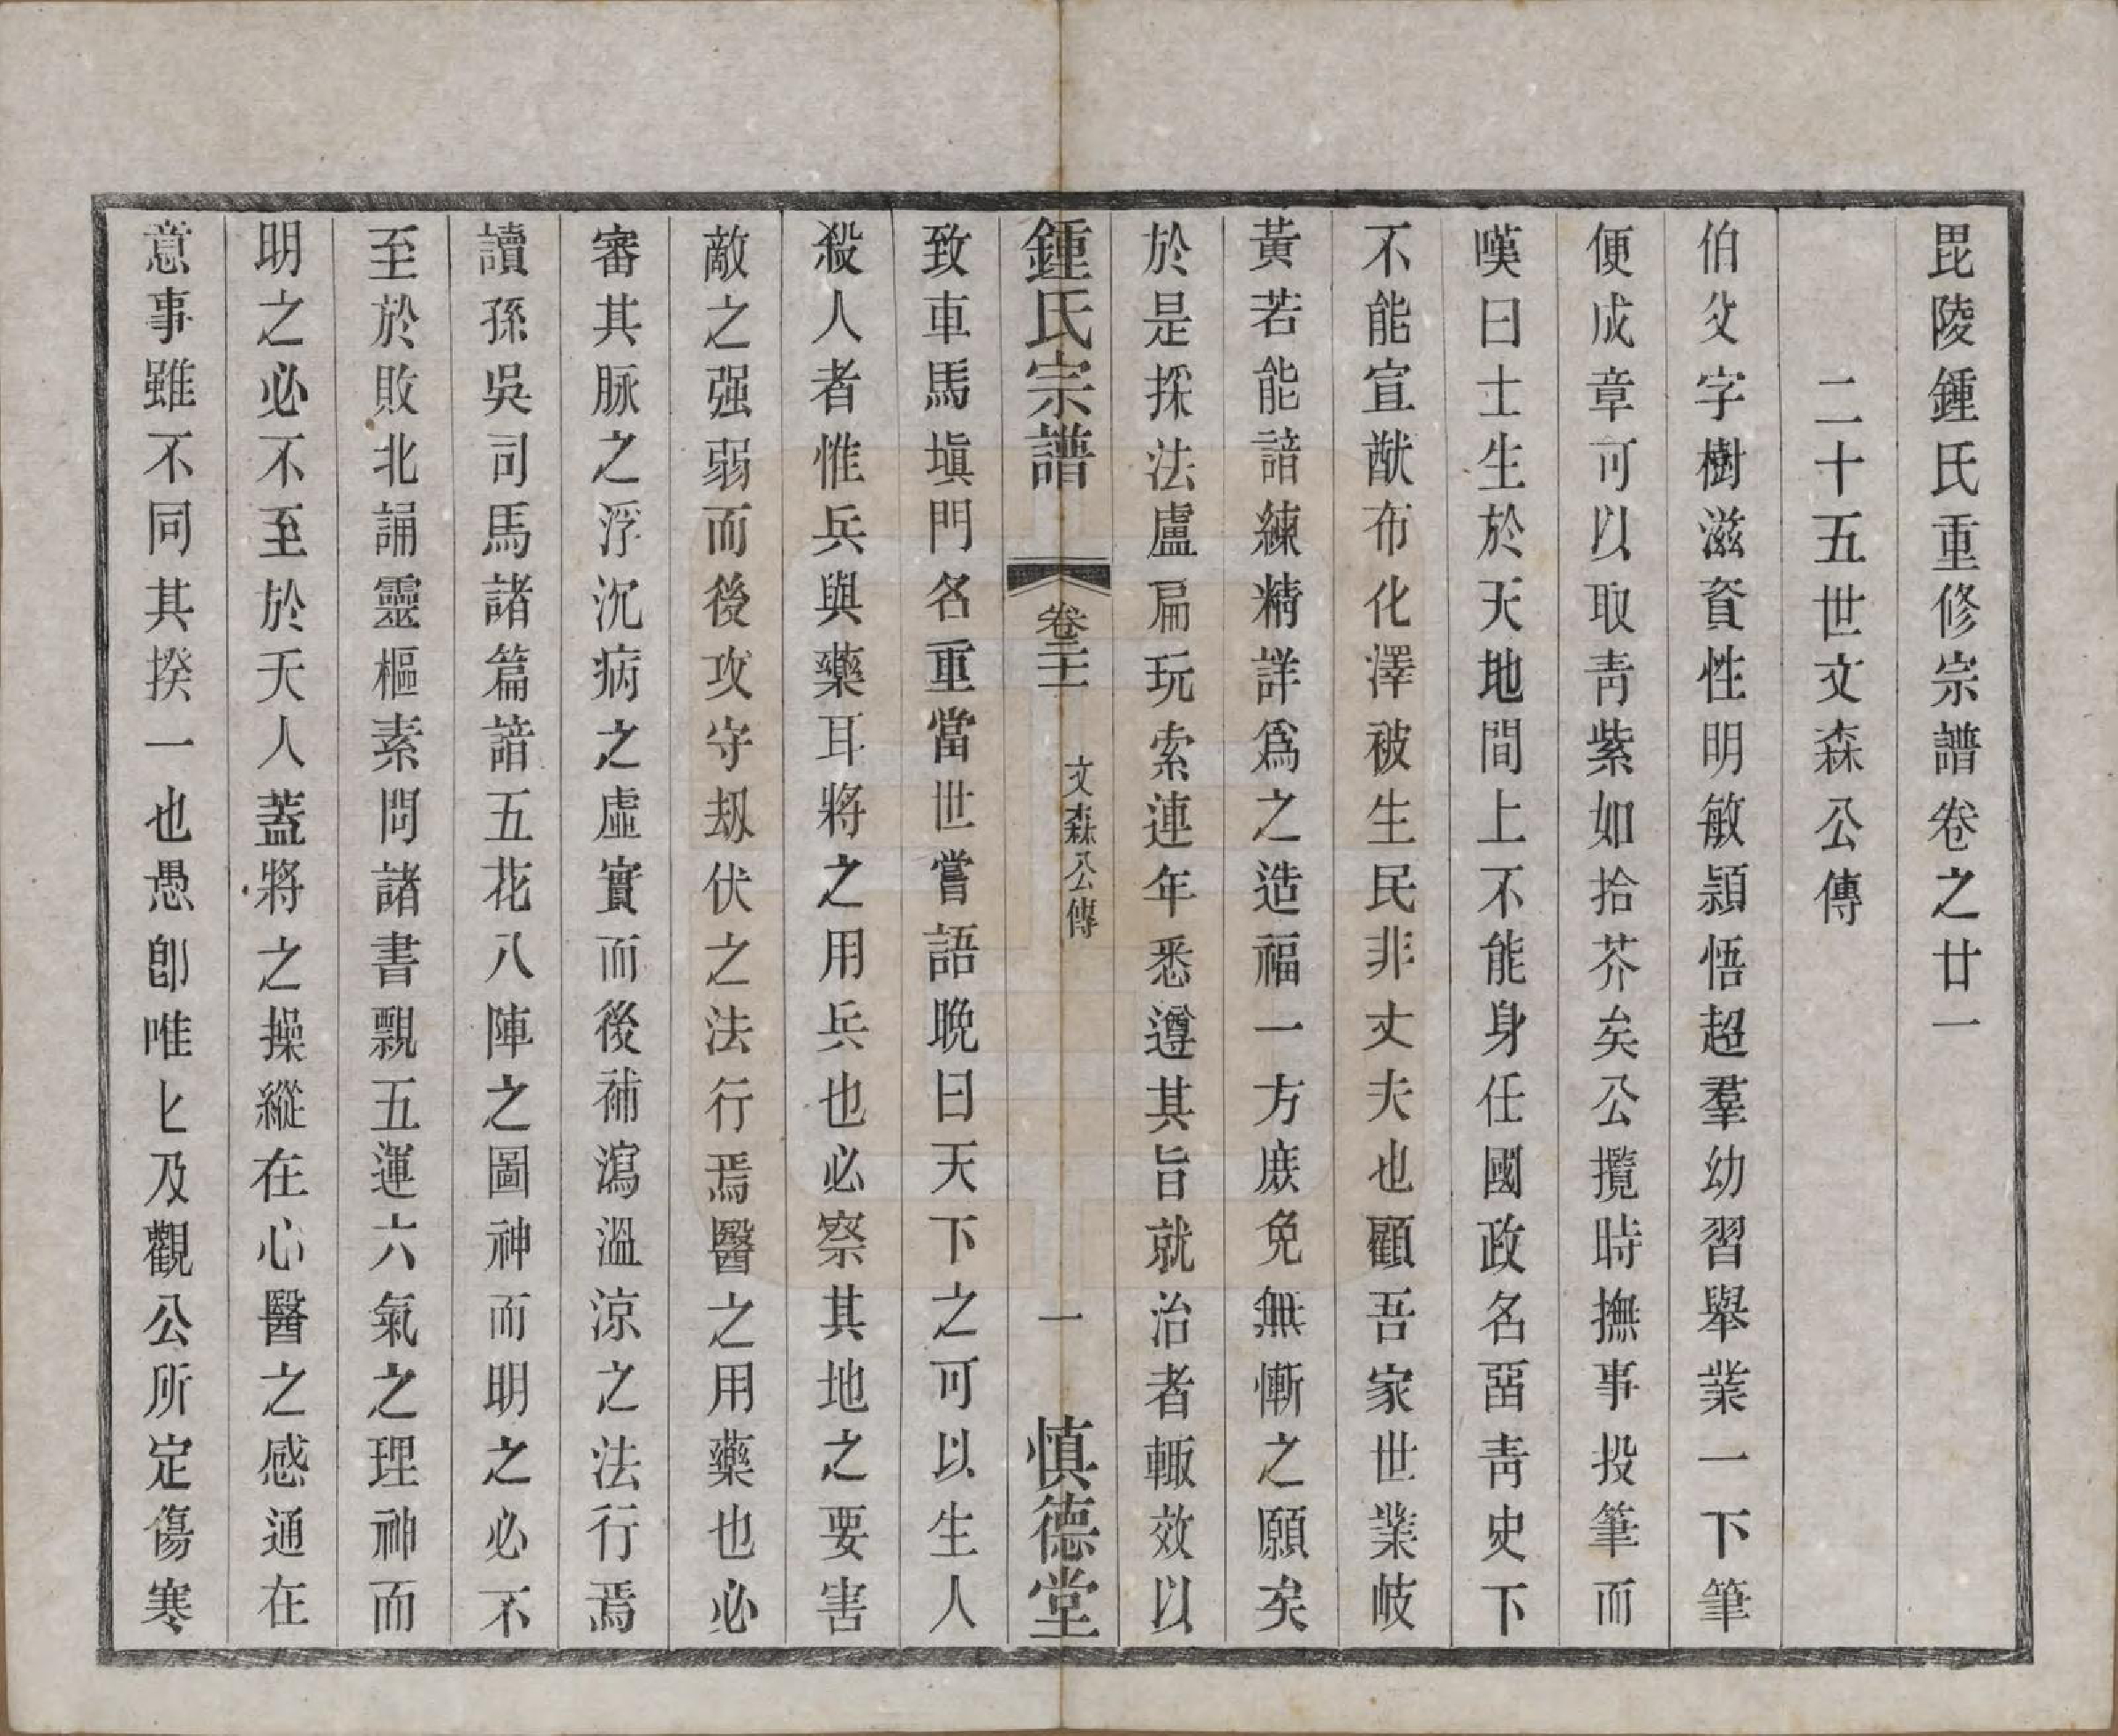 毘陵鍾氏重修宗譜卷之廿一
二十五世文森公傳
伯父字樹滋資性明敏潁悟超羣幼習舉業一下筆
便成章可以取靑紫如拾芥矣公攬時撫事投筆而
嘆曰士生於天地間上不能身任國政名畱靑史下
不能宣猷布化澤被生民非丈夫也顧吾家世業岐
黃若能諳練精詳爲之造福一方庶免無慚之願矣
於是採法盧扁玩索連年悉遵其旨就治者輙效以
鍾氏宗譜
卷二十一
文森公傳
一
慎德堂
致車馬塡門名重當世嘗語晚曰天下之可以生人
殺人者惟兵與藥耳將之用兵也必察其地之要害
敵之强弱而後攻守刼伏之法行焉醫之用藥也必
審其脉之浮沉病之虛實而後補瀉溫涼之法行焉
讀孫吳司馬諸篇諳五花八陣之圖神而明之必不
至於敗北誦靈樞素問諸書親五運六氣之理神而
明之必不至於夭人蓋將之操縱在心醫之感通在
意事雖不同其揆一也愚卽唯匕及觀公所定傷寒